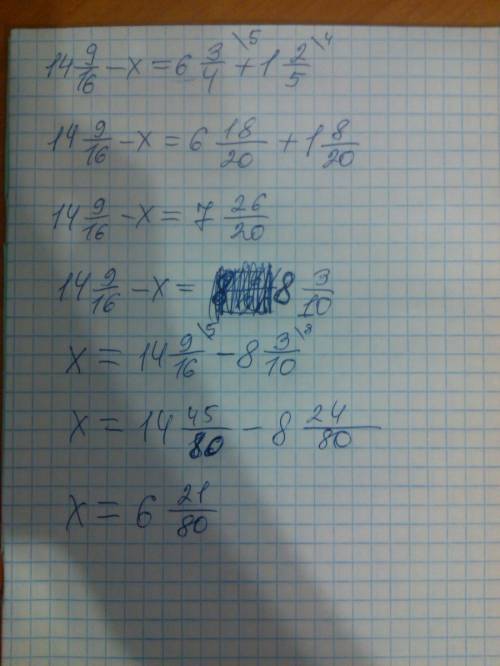 14 9/16 − x = 6 3/4 \5 + 1 2/5 \4
14 9/16 − x = 6 18/20 + 1 8/20
14 9/16 − x = 7 26/20
14 9/16 − x = 8 3/10
x = 14 9/16 \5 − 8 3/10 \8
x = 14 45/80 − 8 24/80
x = 6 21/80